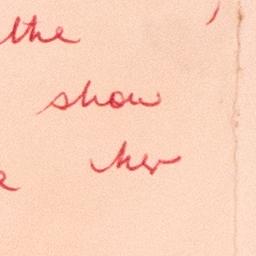 the
show
her